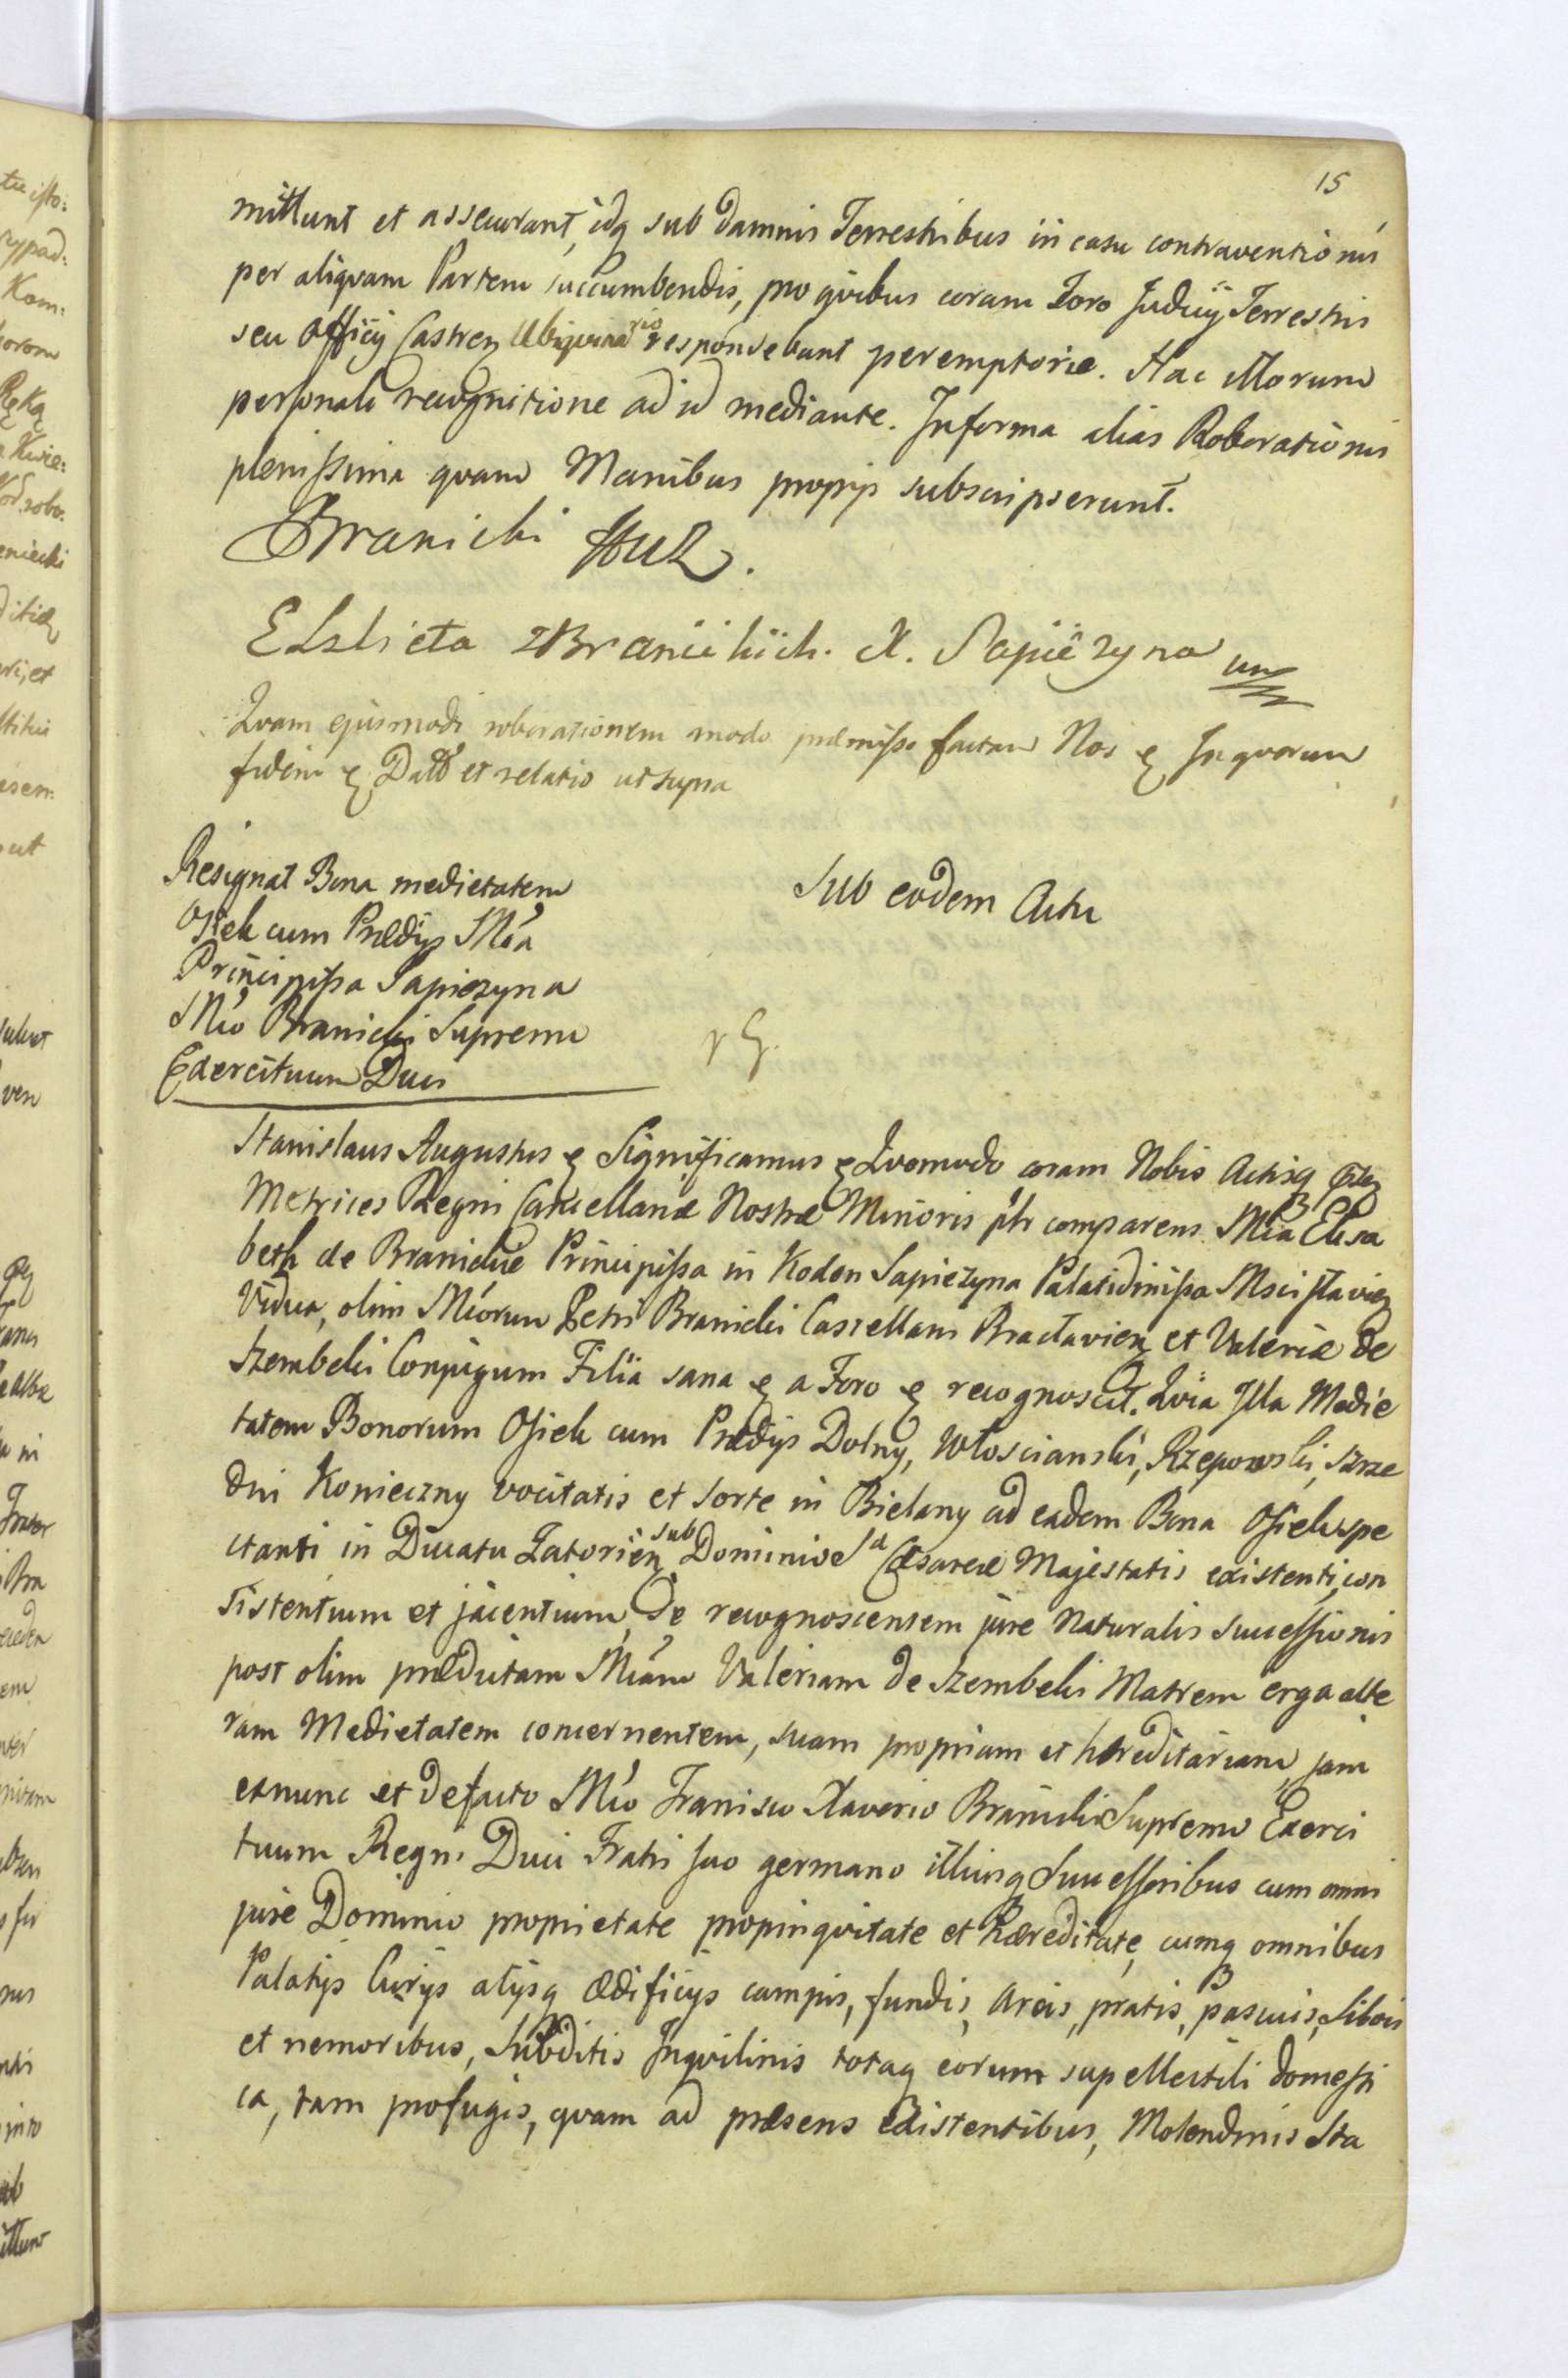 15
mittunt et assecurant, idq sub damnis Terrestribus in casu contraventionis
per aliqvam Partem succumbendis, pro qvibus coram Foro Judicij Terrestris
seu Officij Castren Ubiqvinario respondebunt peremptorie. Hac Illorum
personali recognitione ad id mediante. In forma alias Roborationis
plenissima qvam Manibus proprijs subscripserunt.
Branicki HWK.
Elzbieta z Branickich X. Sapiežyna
Qvam ejusmodi roborationem modo præmisso factam Nos & In qvorum
fidem & Datt et relatio ut supra
Resignat Bona medietatem
Osiek cum Prædijs Mca
Principissa Sapiezyna
Mco Branicki Supremo
Exercituum Duci
Sub eodem Actu
Stanislaus Augustus & Significamus & Qvomodo coram Nobis Actisq ptbz
Metrices Regni Cancellariæ Nostræ Minoris pltr comparens Mca Elisa
beth de Branickie Principissa in Koden Sapiezyna Palatidinissa Mscislavien
Vidua, olim Mcorum Petri Branicki Castellani Braclavien et Valeriæ de
Szembeki Conjugum Filia sana & a Foro & recognoscit. Qvia Illa Medie
tatem Bonorum Osiek cum Prædijs Dolny, Włoscianski, Rzepowski, Szrze
dni Konieczny vocitatis et sorte in Bielany ad eadem Bona Osiek spe
ctanti in Ducatu Zatorien sub Dominio Sa Cæsareæ Majestatis existenti, con
sistentium et jacentium, Se recognoscentem jure Naturalis Successionis
post olim prædictam Mcam Valeriam de Szembeki Matrem erga alte
ram Medietatem concernentem, suam propriam et hæreditariam, jam
exnunc et defacto Mco Francisco Xaverio Branicki Supremo Exerci
tuum Regni Duci Fratri suo germano illiusq Successoribus cum omni
jure Dominio proprietate propinqvitate et hæreditate, cumq omnibus
Palatijs Curijs alijsq ædificijs campis, fundis, areis, pratis, pascuis, Silvis
et nemoribus, Subditis Inqvilinis totaq eorum supellectili domesti
ca, tam profugis, qvam ad præsens existentibus, Molendinis Sta